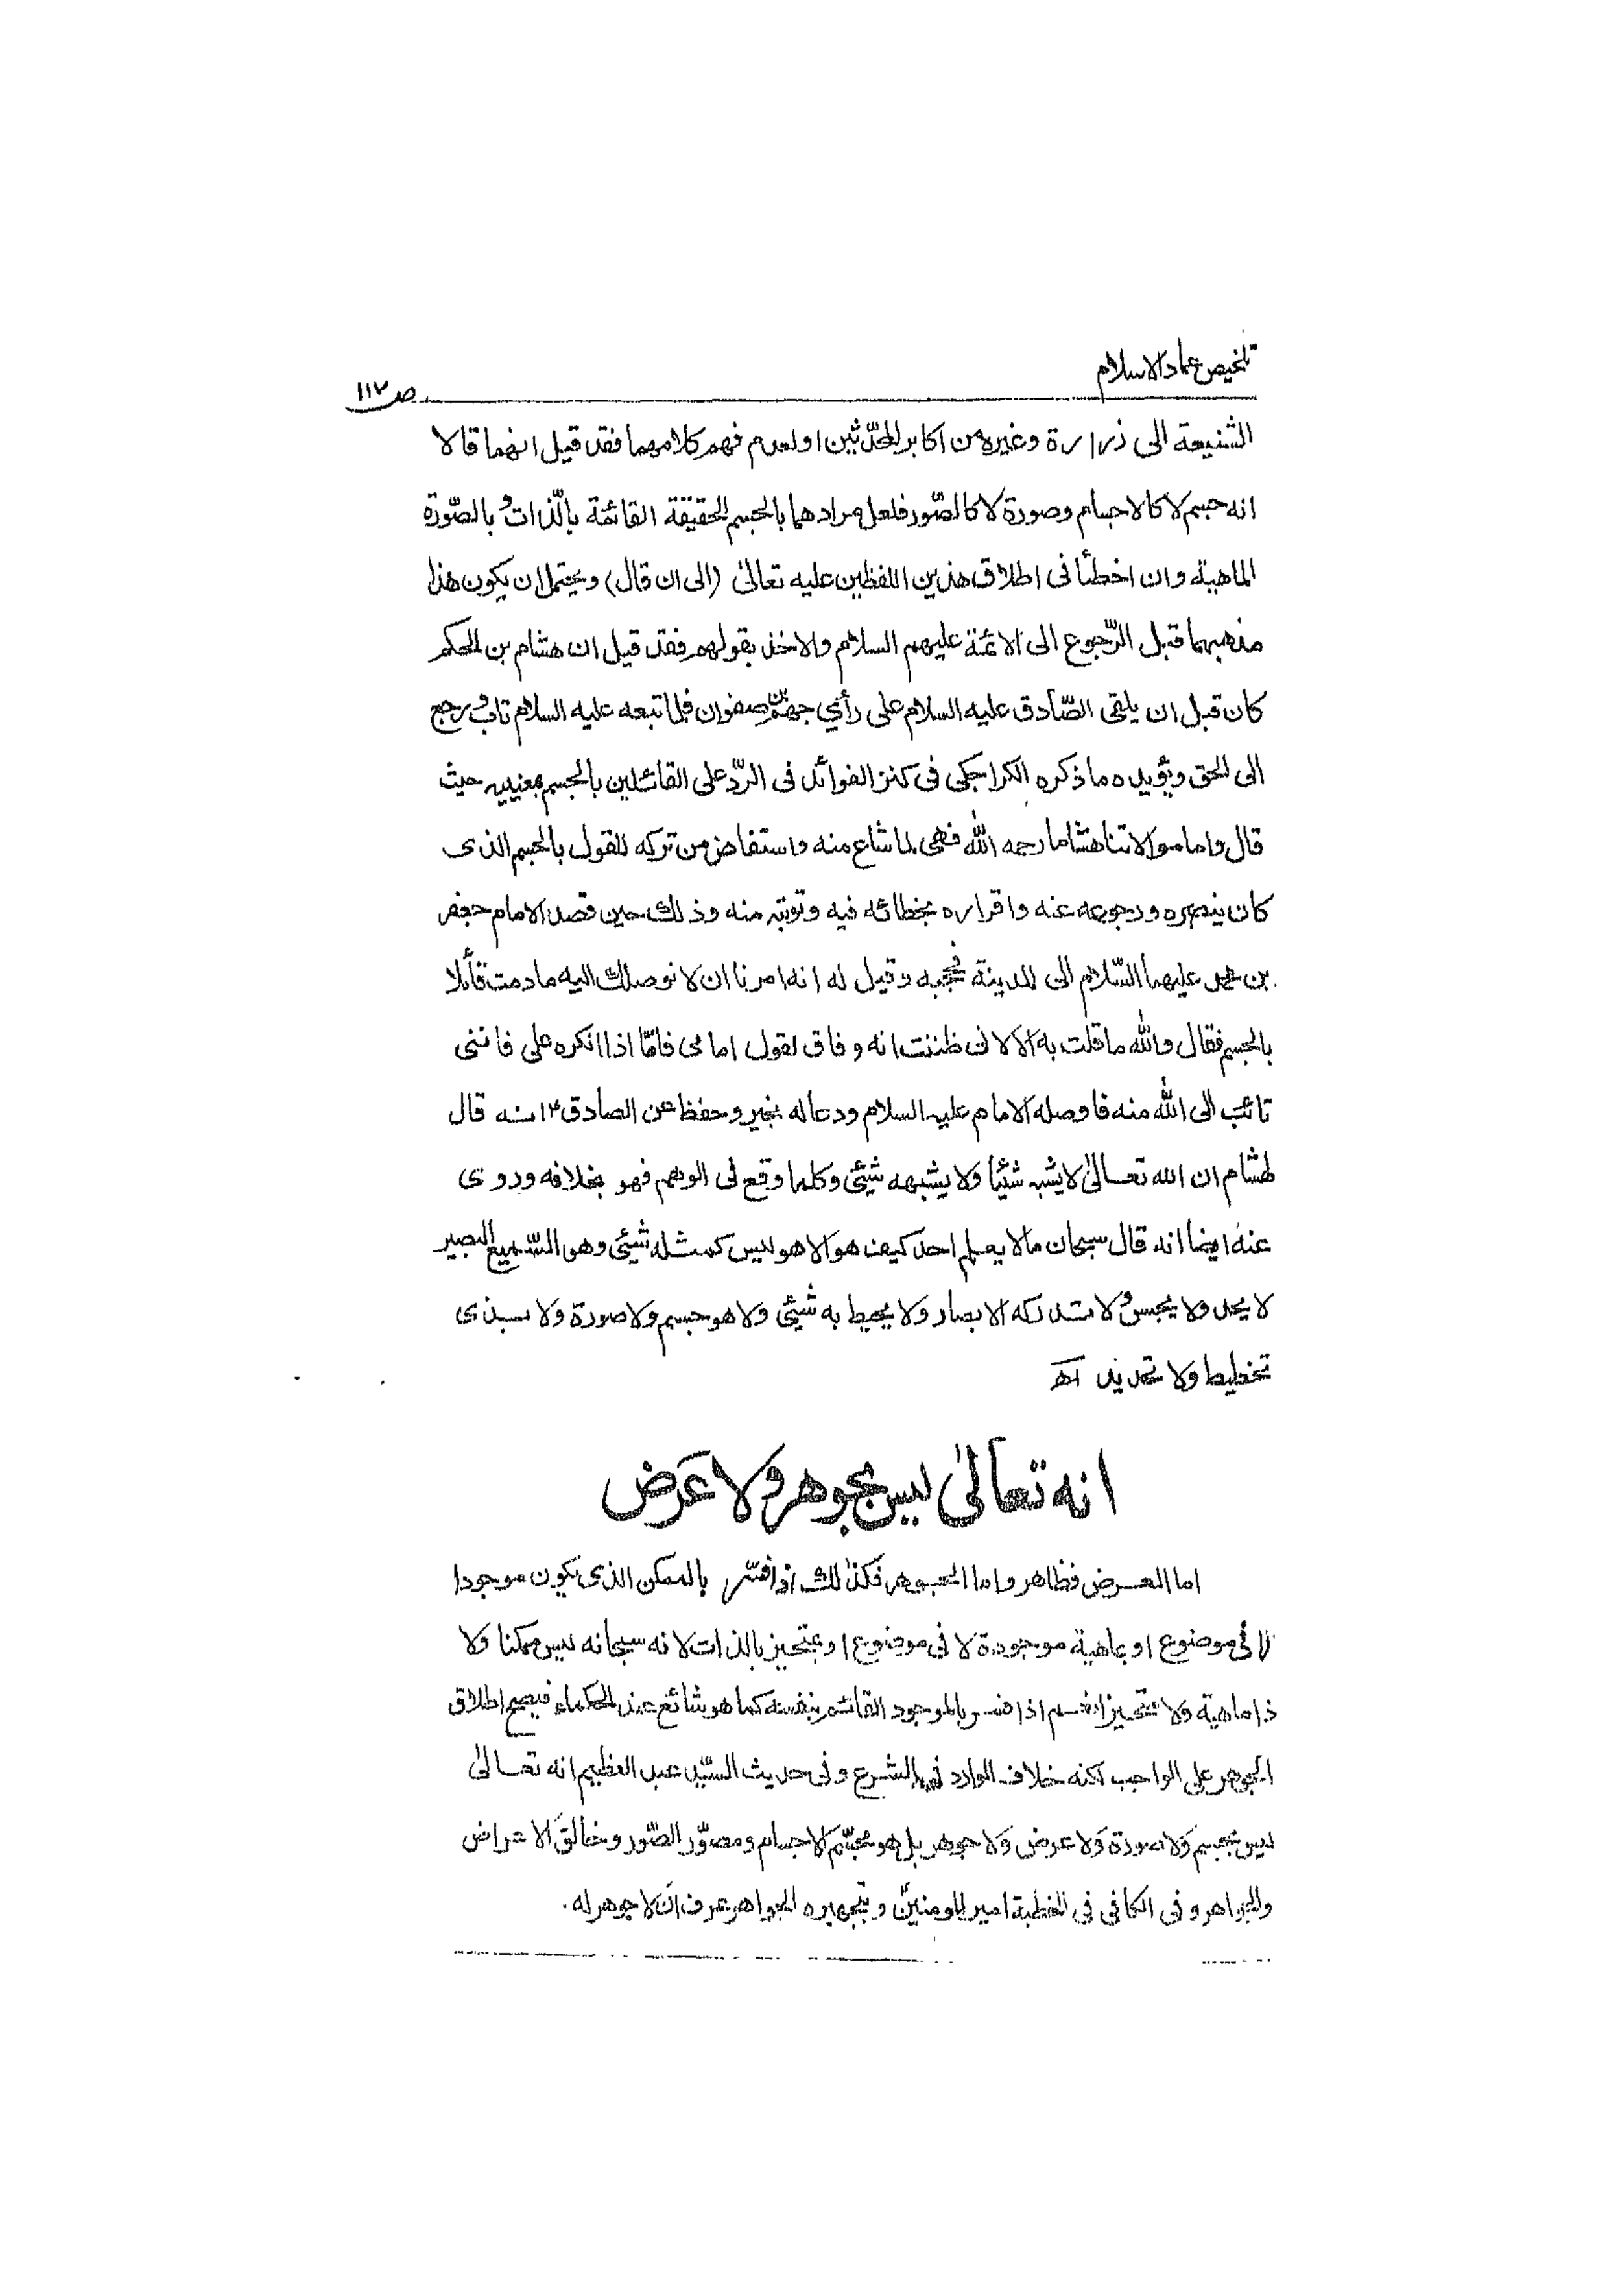 تلخيص عماد الاسلام
ص ١١٧
الشنيعة الى زرارة وغيره من اكابر المحدّثين او لعدم فهم كلامهما فقد قيل انهما قالا
انه جسم لا كالاجسام وصورة لا كالصّور فلعل مرادهما بالجسم الحقيقة القائمة بالّذات و بالصّورة
الماهية وان اخطئا فى اطلاق هذين اللفظين عليه تعالىٰ (الى ان قال) ويحتمل ان يكون هذا
مذهبهما قبل الرّجوع الى الائمّة عليهم السلام والاخذ بقولهم فقد قيل ان هشام بن الحكم
كان قبل ان يلقى الصّادق عليه السلام على رأي جهم بن صفوان فلما تبعه عليه السلام تاب و رجع
الى الحق ويؤيده ما ذكره الكراجكى فى كنز الفوائد فى الردّ على القائلين بالجسم بمعنييه حيث
قال واما موالاتنا هشاما رحمه الله فهى لما شاع منه واستفاض من تركه للقول بالجسم الذى
كان ينصره ورجوعه عنه واقراره بخطائه فيه وتوبته منه وذلك حين قصد الامام جعفر
بن محمد عليهما السّلام الى المدينة فحجبه وقيل له انه امرنا ان لا نوصلك اليه ما دمت قائلا
بالجسم فقال والله ما قلت به الا لانى ظننت انه وفاق لقول امامى فامّا اذا انكره على فاننى
تائب الى الله منه فاوصله الامام عليه السلام ودعا له بخير وحفظ عن الصادق ع انه قال
لهشام ان الله تعالىٰ لا يشبه شيئا ولا يشبهه شيئ وكلما وقع فى الوهم فهو بخلافه وروى
عنه ايضا انه قال سبحان من لا يعلم احد كيف هو الا هو ليس كمثله شيئ وهو السّميع البصير
لا يحد ولا يحس و لا تدركه الابصار ولا يحيط به شيئ ولا هو جسم ولا صورة ولا بذى
تخطيط ولا تحديد اهـ
انه تعالىٰ ليس بجوهر ولا عَرَض
اما العرض فظاهر واما الجوهر فكذلك اذا فسّر بالممكن الذى يكون موجودا
لا فى موضوع او بماهية موجودة لا فى موضوع او بمتحيز بالذات لانه سبحانه ليس ممكنا ولا
ذا ماهية ولا متحيزا نعم اذا فسر بالموجود القائم بنفسه كما هو شائع عند الحكماء فيصح اطلاق
الجوهر على الواجب لكنه خلاف الوارد فى الشرع وفى حديث السيّد عبد العظيم انه تعالىٰ
ليس بجسم ولا صورة ولا عرض ولا جوهر بل هو مجسّم الاجسام ومصوّر الصّور وخالق الاعراض
والجواهر وفى الكافى فى الخطبة امير المومنين و بتجهيره الجواهر عرف ان لا جوهر له.